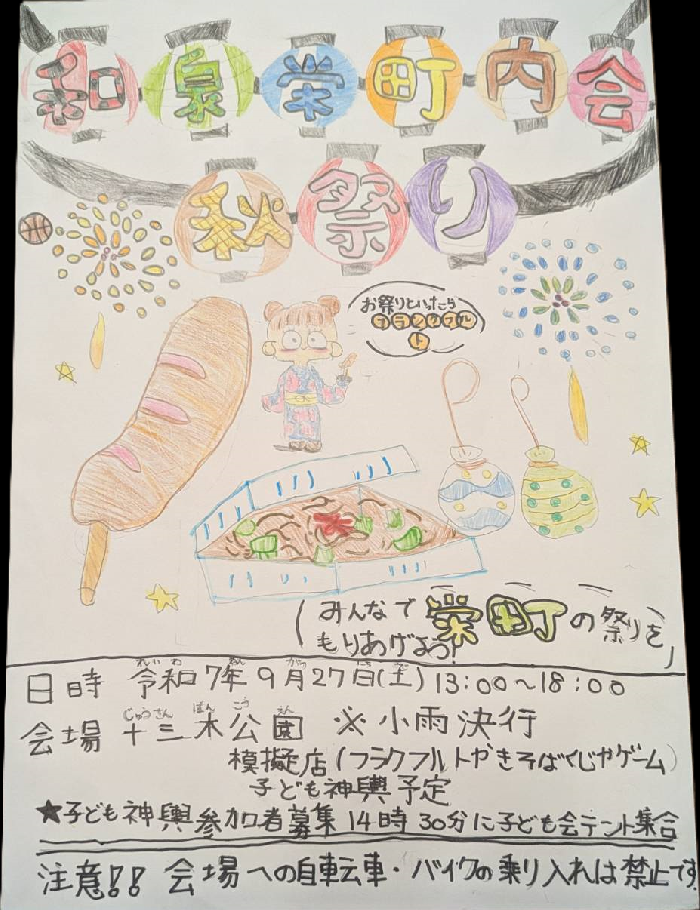 和泉栄町内会
秋祭り
お祭りといったら
フランクフルト
みんなで栄町の祭りを
もりあげよう!
れいわ ねん がつ にち ど
日時 令和7年9月27日(土)13:00~18:00
じゅうさん ぼん こう えん
会場 十三木公園 ※小雨決行
模擬店(フラクフルトやきそばくじやゲーム)
子ども神輿予定
★子ども神輿参加者募集14時30分に子ども会テント集合
注意!! 会場への自転車・バイクの乗り入れは禁止です